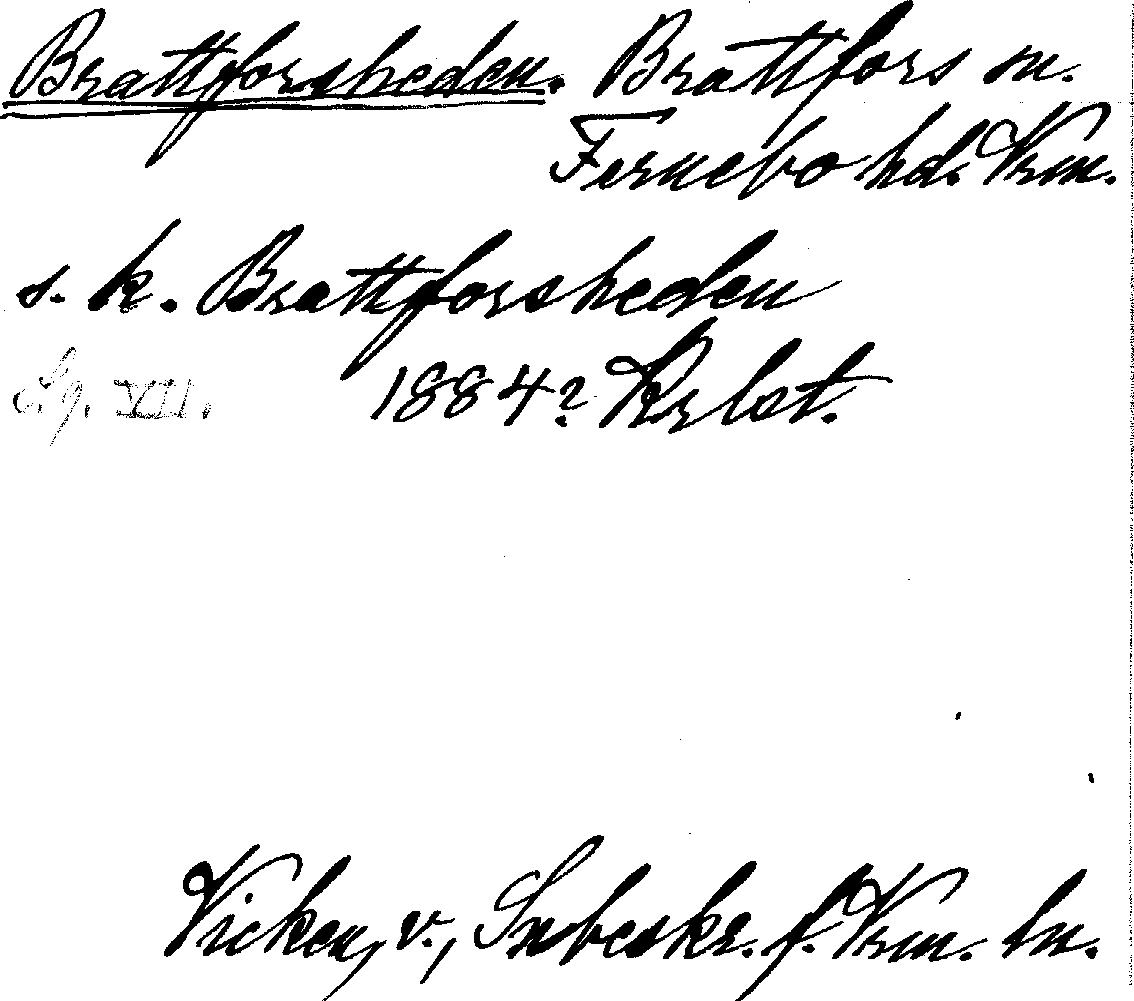 Brattforsheden. Brattfors sn.
Fernebo hd. Vrm.
s. k. Brattforsheden
1884? Krbst.
Vicken, v., Snbeskr. f. Vrm. ln.